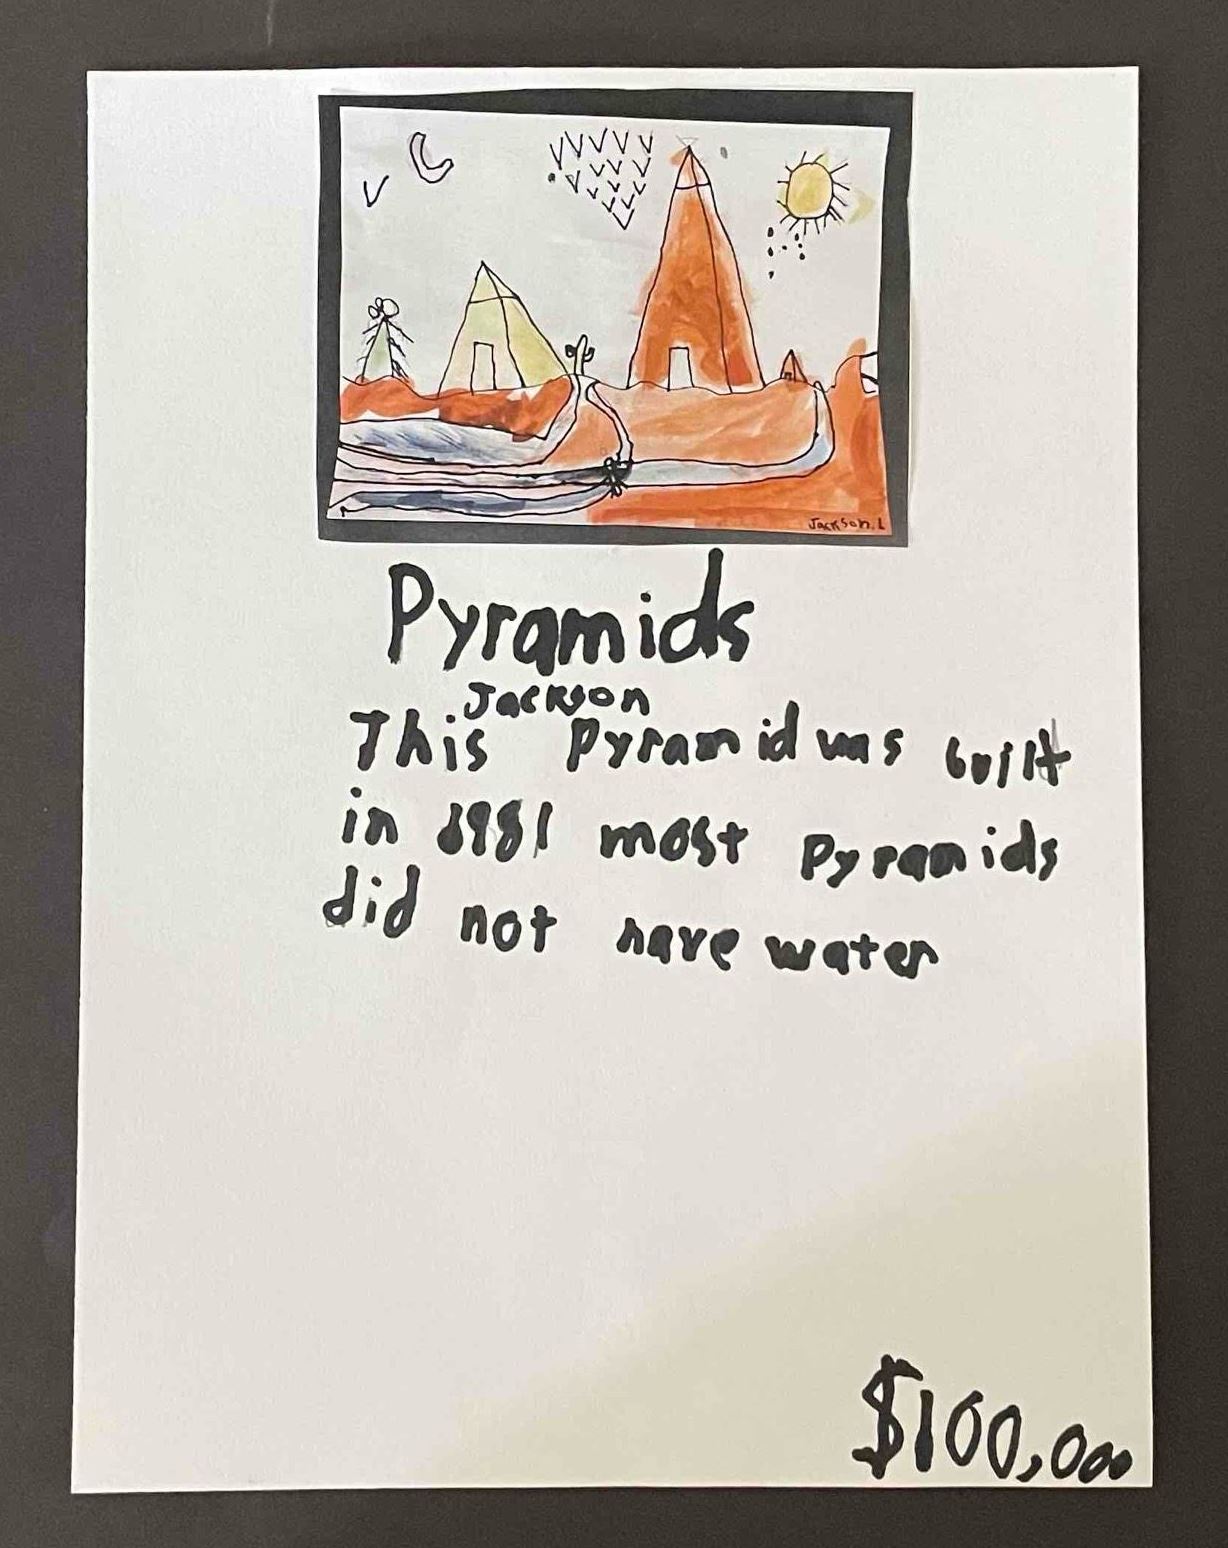 Jackson.L
Pyramids
Jackson
This Pyramid was built
in 1981 most Pyramids
did not have water
$100,000